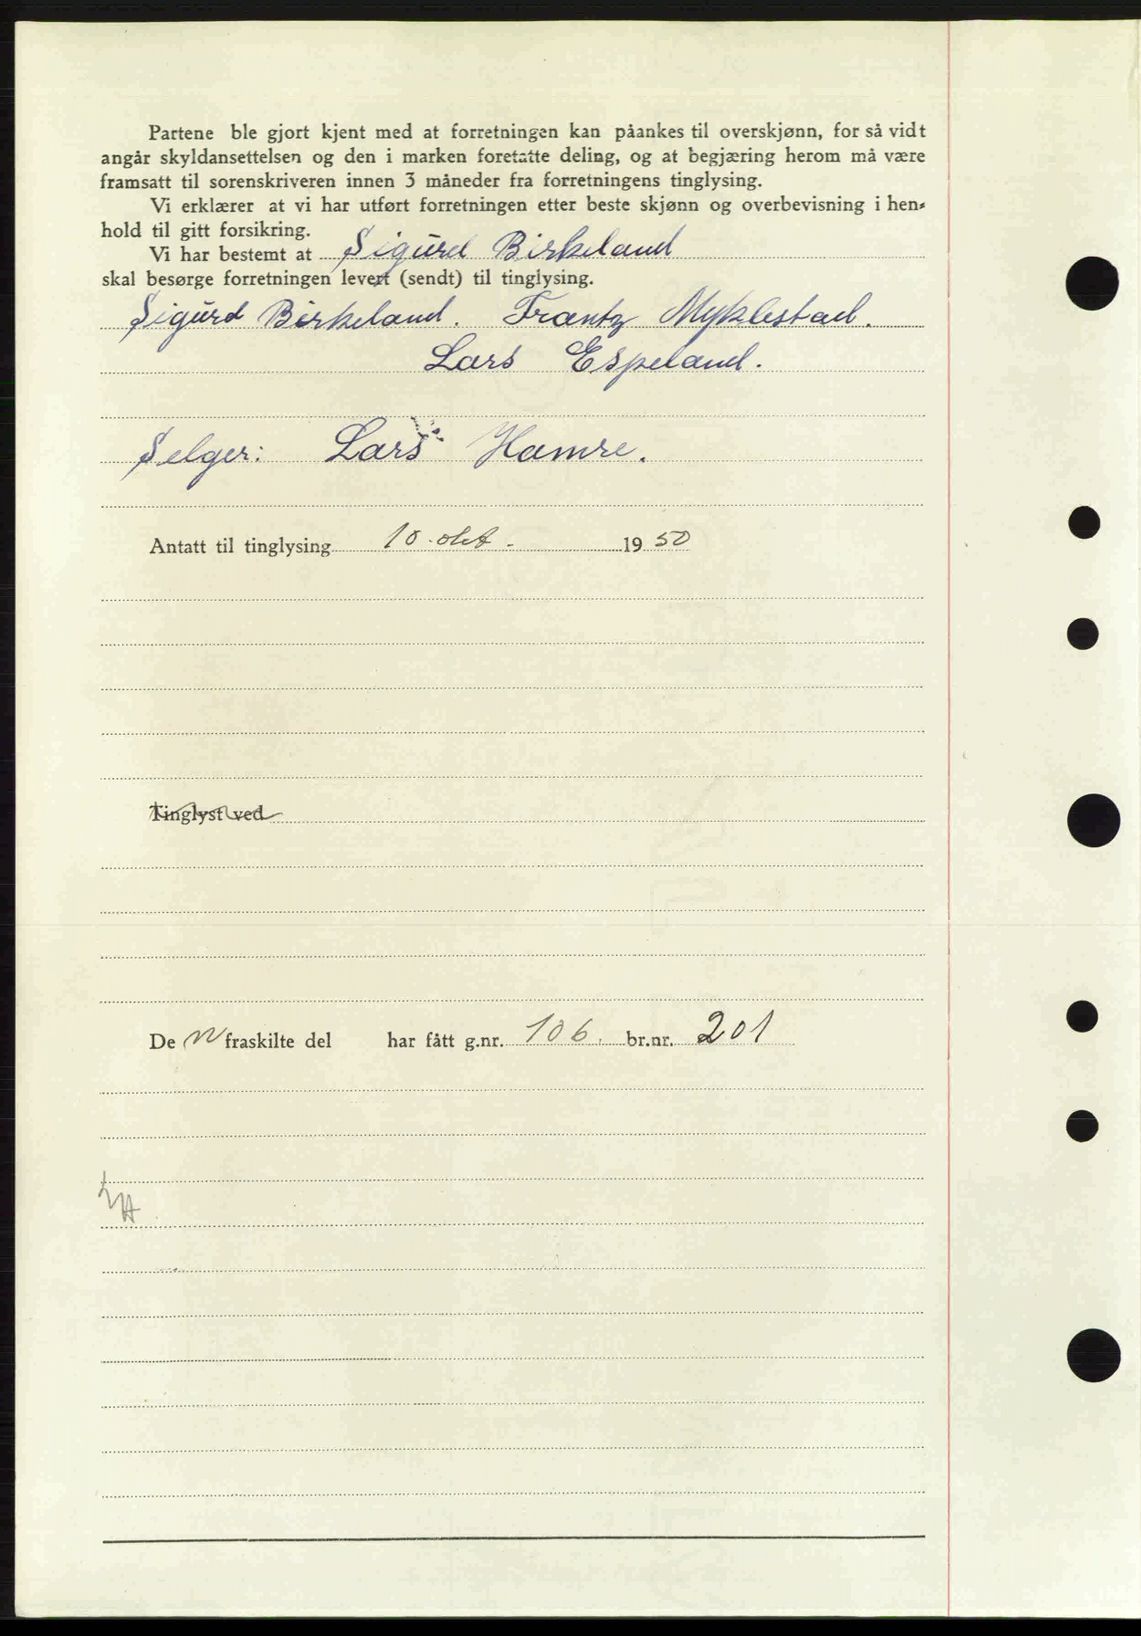 Partene ble gjort kjent med at forretningen kan påankes til overskjønn, for så vidt
angår skyldansettelsen og den i marken foretatte deling, og at begjæring herom må være
framsatt til sorenskriveren innen 3 måneder fra forretningens tinglysing.
Vi erklærer at vi har utført forretningen etter beste skjønn og overbevisning i hen-
hold til gitt forsikring.
Vi har bestemt at Sigurd Birkeland
skal besørge forretningen levert (sendt) til tinglysing.
Sigurd Birkeland. Frantz Myklestad.
Lars Espeland.
Selger: Lars Hamre.
Antatt til tinglysing 10. okt. 1950
Tinglyst ved
De n fraskilte del har fått g.nr. 106. br.nr. 201